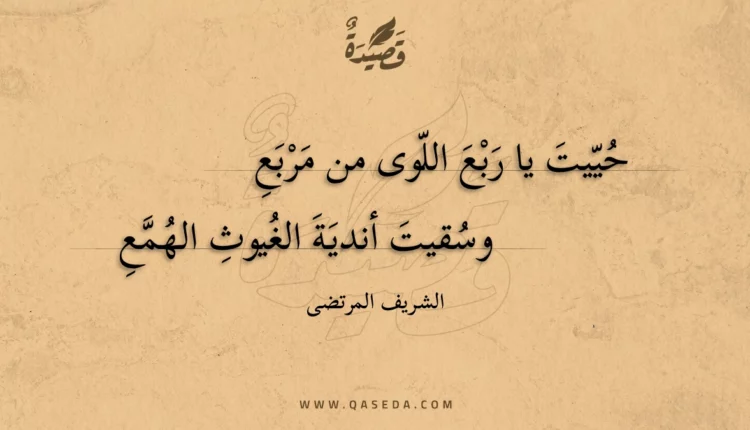 قَصِيْدَةٌ
حُيّيتَ يا رَبْعَ اللّوى من مَرْبَعِ
وسُقيتَ أنديَةَ الغُيوثِ الهُمَّعِ
الشريف المرتضى
WWW.QASEDA.COM